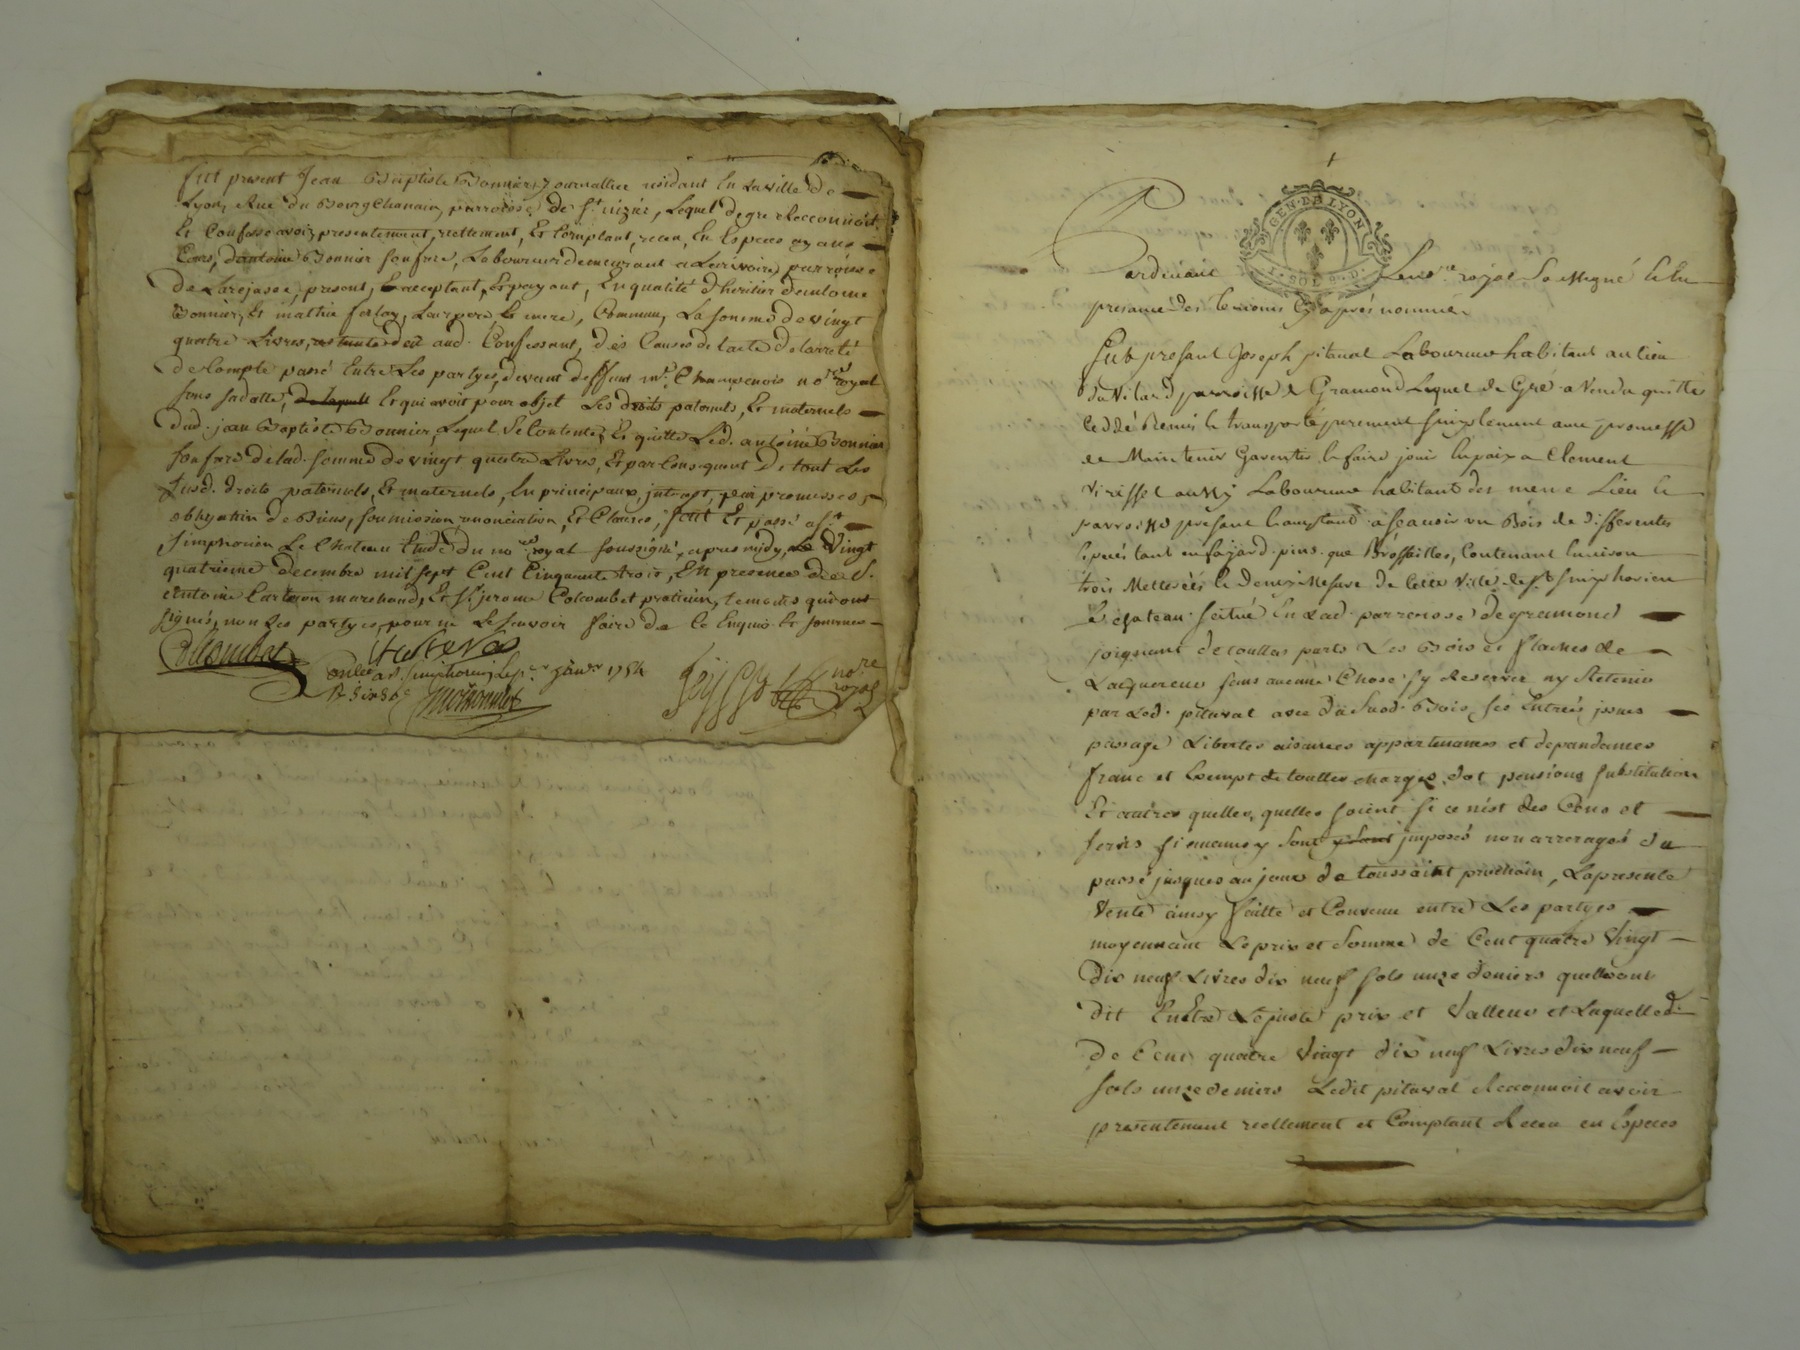 fut present Jean Baptiste Bonnier, Journallier residant En La ville de
Lyon, Rue du Bourgchanain, parroisse de St. nizier, Lequel de gre a Recconnoit
Et Confessé avoir presentement, reellement, Et Comptant, receu, En Especes ayans
Cours, d'antoine Bonnier son frere, Laboureur demeurant a Larivoire parroisse
De Larejasse, present, Et acceptant, Et payant, En qualité d'heritier d'antoine
Bonnier, Et mathie, Leur pere Et mere, Commun, La somme de vingt
quatre Livres, aud. Confessant, des Causes de l'acte d'arreté
de Compte passé Entre Les partyes, devant deffunt me. Champenois nore. royal
sous sa datte, de laquelle Et qui avoit pour objet Les droits paternels, Et maternels
dud. jean Baptiste Bonnier, Lequel se Contente, Et quitte Led. antoine Bonnier
son frere de lad. somme de vingt quatre Livres, Et par Consequent De tout Les
susd. droits paternels, Et maternels, En principaux, interest, promesses,
obligation de Biens, soumission, renonciation, Et Clauses, fait Et passé a St.
simphorien Le Chateau Etude du nore. royal soussigné, apres midy, Le Vingt
quatrieme decembre mil sept Cent Cinquante trois, En presence de S.
antoine marchand, Et S. jerome Colcombet praticien, temoins qui ont
signés, non Les partyes, pour ne Le scavoir faire de Ce Enquis Et sommes
Colcombet
Conllé a St. Simphorien Le janer 1754
nore
royal
GEN. DE LYON
Pardevant Le nore. royal soussigné Et En
presance des temoins cy apres nommés
fut present Joseph pitaval Laboureur habitant au lieu
du Vilard parroisse de Gramond Lequel de Gré a Vendu quitté
Cedé Remis Et transporté purement simplement avec promesse
de Maintenir Garentir Et faire jouir En paix a Clement
Virissel aussy Laboureur habitant du meme Lieu Et
parroisse present Et acceptant asçavoir un Bois de differentes
Especes tant en fajard pins que Brossailles, Contenant Environ
trois Metterées Et Demy Mesure de Cette Ville de St simphorien
Le chateau scitué En Lad. parroisse de gramond
joignant de touttes parts Les Bois et de
L'acquereur sans aucune Chose s'y Reserver ny Retenir
par Led. pitaval avec du Susd. Bois ses Entrées issues
passage Libertes aisances appartenances et dependances
franc et Exempt de touttes charges dot pensions substitution
Et autres quelles quelles soient si ce n'est des Cens et
servis si aucuns y sont y sont imposés non arreragés du
passé jusques au jour de toussaint prochain, La presente
Vente ainsy faitte et Convenue entre Les partyes
moyennant Le prix et somme de Cent quatre Vingt
dix neuf Livres dix neuf sols unze deniers quelles ont
dit Entre Le juste prix et Valleur et Laquelle d.
de Cent quatre Vingt dix neuf Livres dix neuf
sols unze deniers Ledit pitaval Reconnoit avoir
presentement reellement et Comptant Receu en Especes